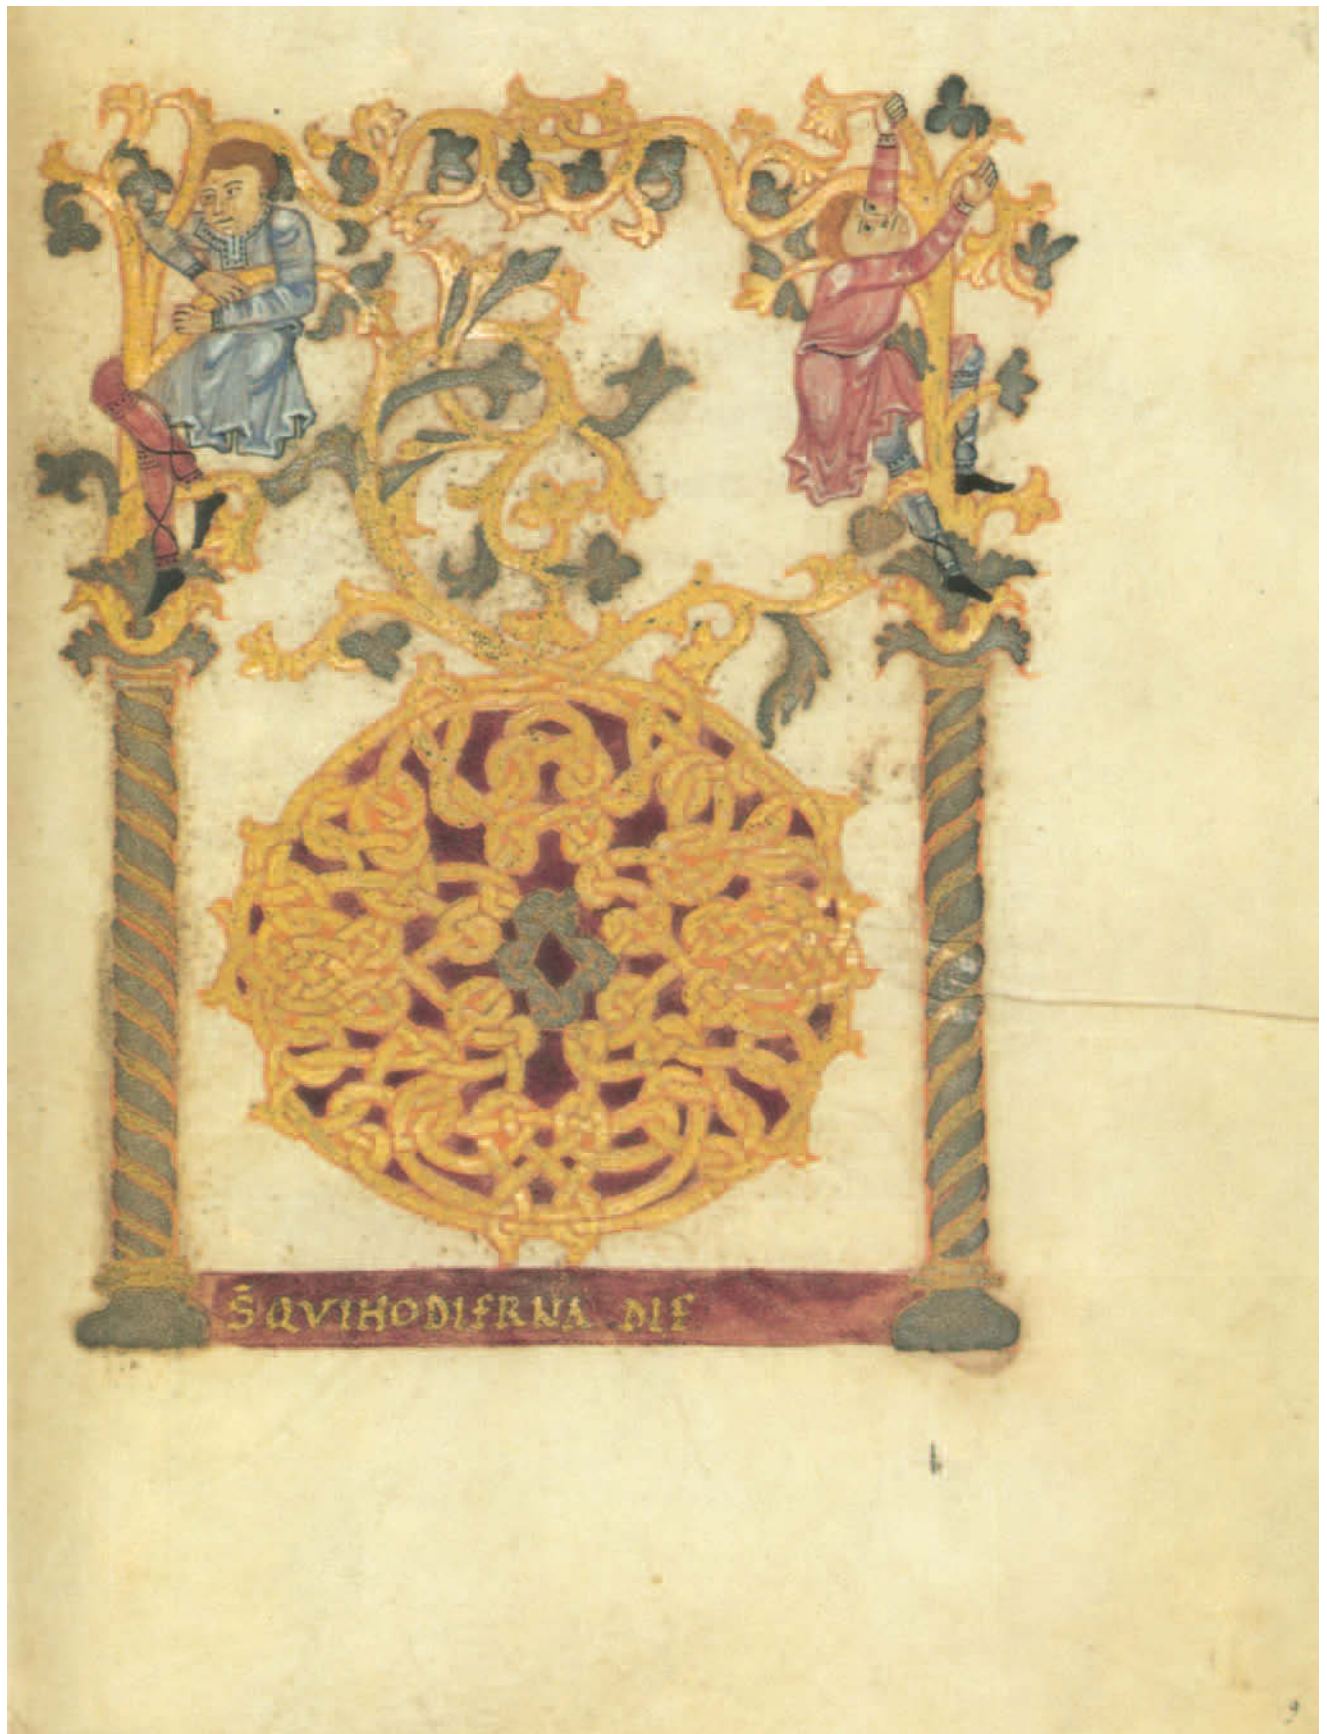 S̄ QVI HODIERNA DIE
9